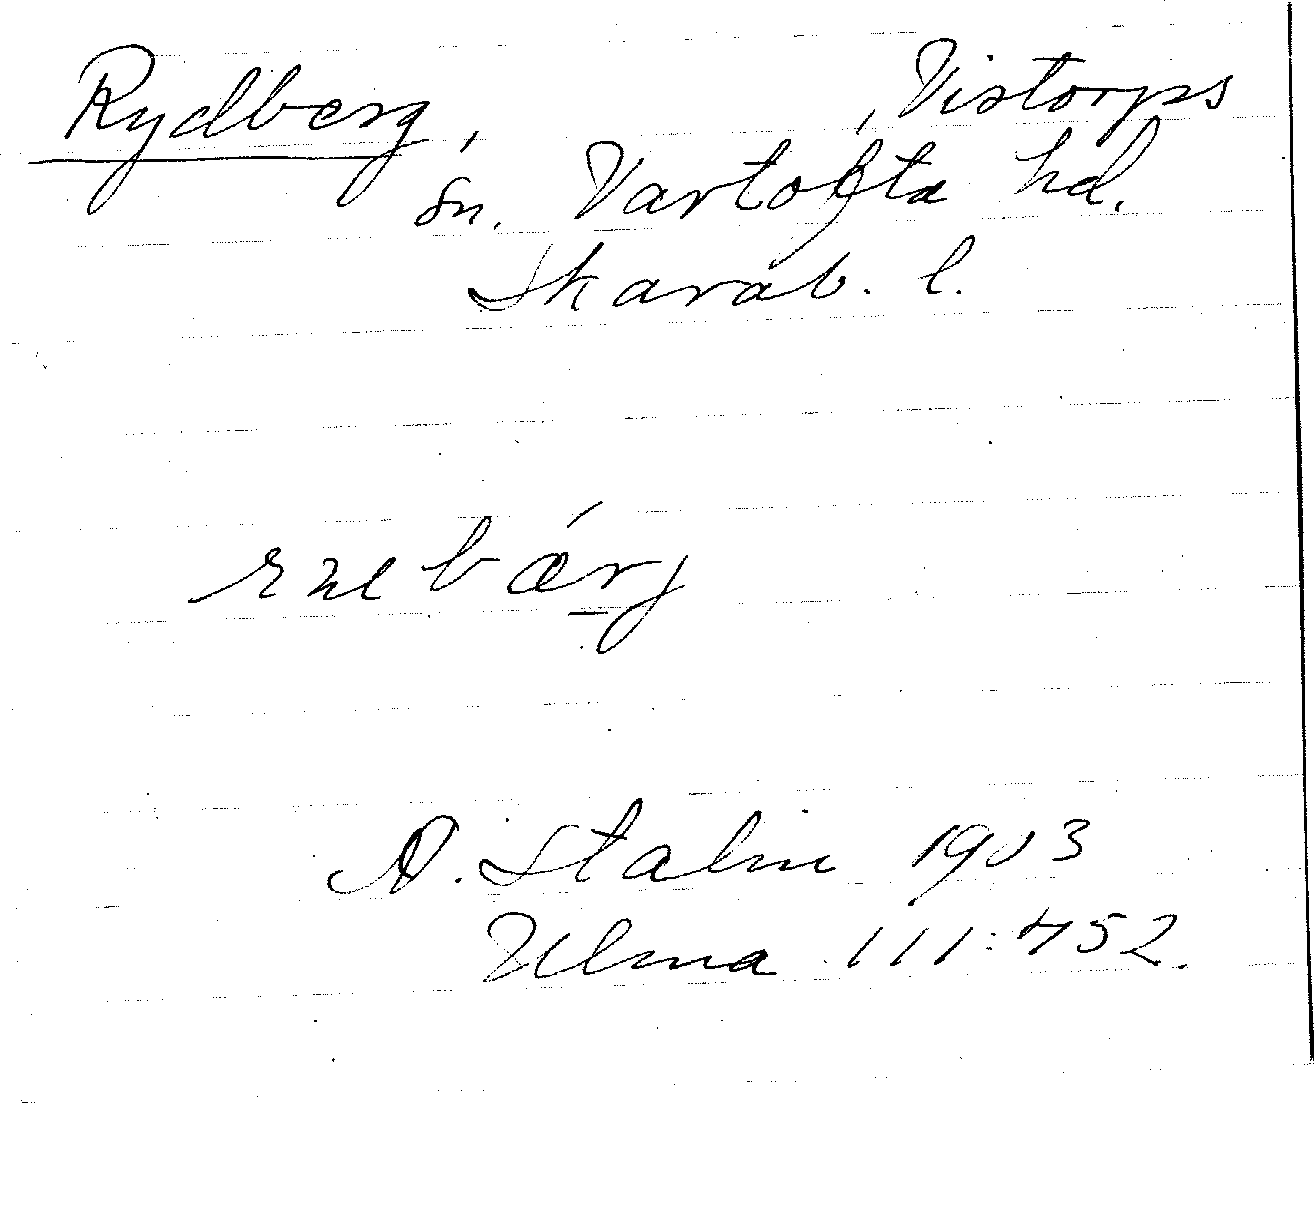 Rydberg, , Vistorps
sn. Vartofta hd.
Skarab. l.
A. Stalin 1903
Ulma 111:452.